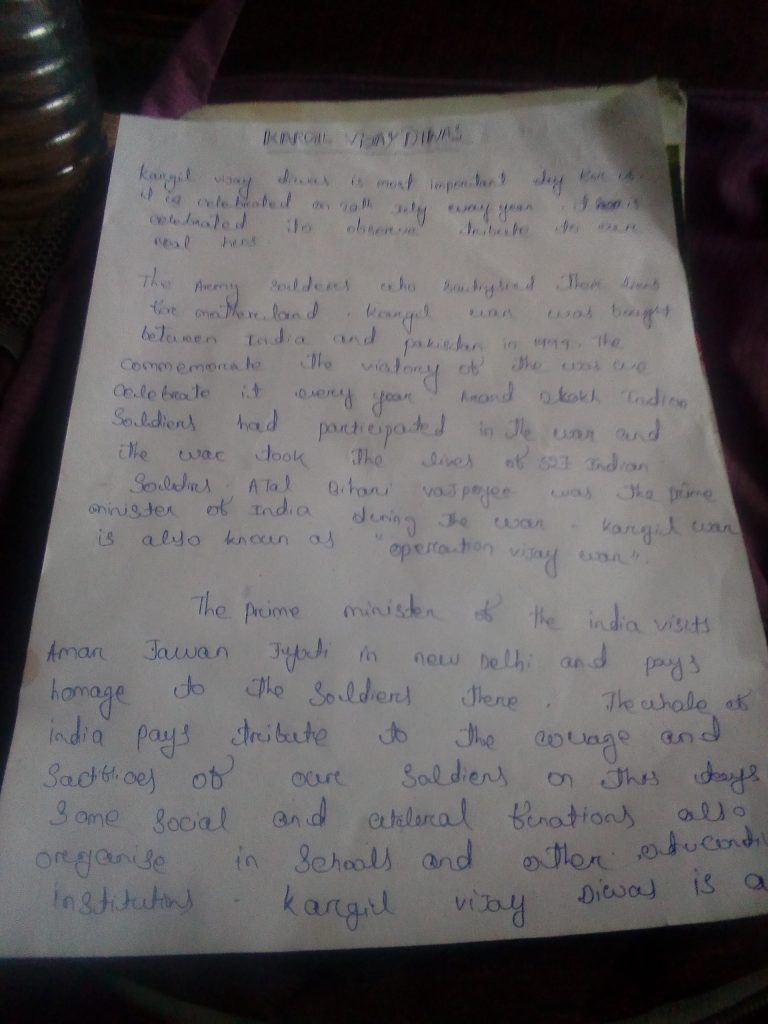 KARGIL VIJAY DIWAS
Kargil vijay diwas is most important day for us.
it is celebrated on July every year. it is
celebrated to observe tribute to our
real heros.
The Army who their lives
for land. Kargil war was
between India and pakistan in 1999. The
commemorate the victory of the war we
celebrate it every year Indian
Soldiers had participated in the war and
the war took the lives of 527 Indian
Soldirs. Atal Bihari vajpayee was the prime
minister of India during the war - kargil war
is also known as "operation vijay war".
The prime minister of the india visits
Amar Jawan Jyoti in new Delhi and pays
homage to the Soldiers there. The whole of
india pays tribute to the courage and
of our Soldiers on this days
Some Social and also
oreganise in Schools and other
institutions. Kargil vijay Diwas is a